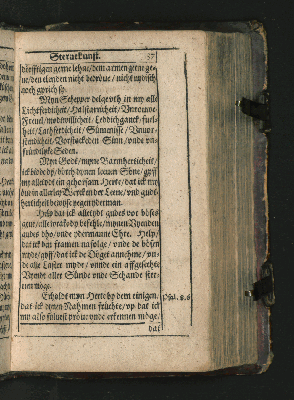 Steruekunst. 57
dörfftigen gerne lehne/ dem armen gerne geue/
ne/ den elenden nicht bedröue/ nicht nydisch
noch gyrich sy.
Myn Schepper delgevth in my alle
Lichtferdicheit/ Halsstarricheit/ Unrouwe/
Freuel/ modtwillicheit/ Leddichganck/ fuel-
heit/ Lathferdicheit/ Sümenisse/ Unuor-
stendicheit/ Vorstockeden Sinn/ unde un-
früntlyke Seden.
Myn Godt/ myne Barmherticheit/
ick bidde dy/ dörch dynen leuen Söne/ gyff
my alletydt ein gehorsam Herte/ dat ick my
öue in allerley Wercken der Leue/ vnd güdt-
herticheit bewyse gegen yderman.
Help dat ick alletydt gudes vor böses
geue/ alle wrake dy befehle/ mynen Vyenden
gudes dho/ vnde ydermanne Ehre. Help/
dat ick den framen nafolge/ vnde de bösen
myde/ gyff/ dat ick de Döget annehme/ vn-
de alle Laster myde/ vnde ein affgesechte
Vyendt aller Sünde vnde Schande ster-
uen möge.
Erholdt myn Herte by dem einigen/ Psal. 86
dat ick dynen Nahmen früchte/ vp dat ick
my allo sülvest pröue vnde erkennen möge/
dat